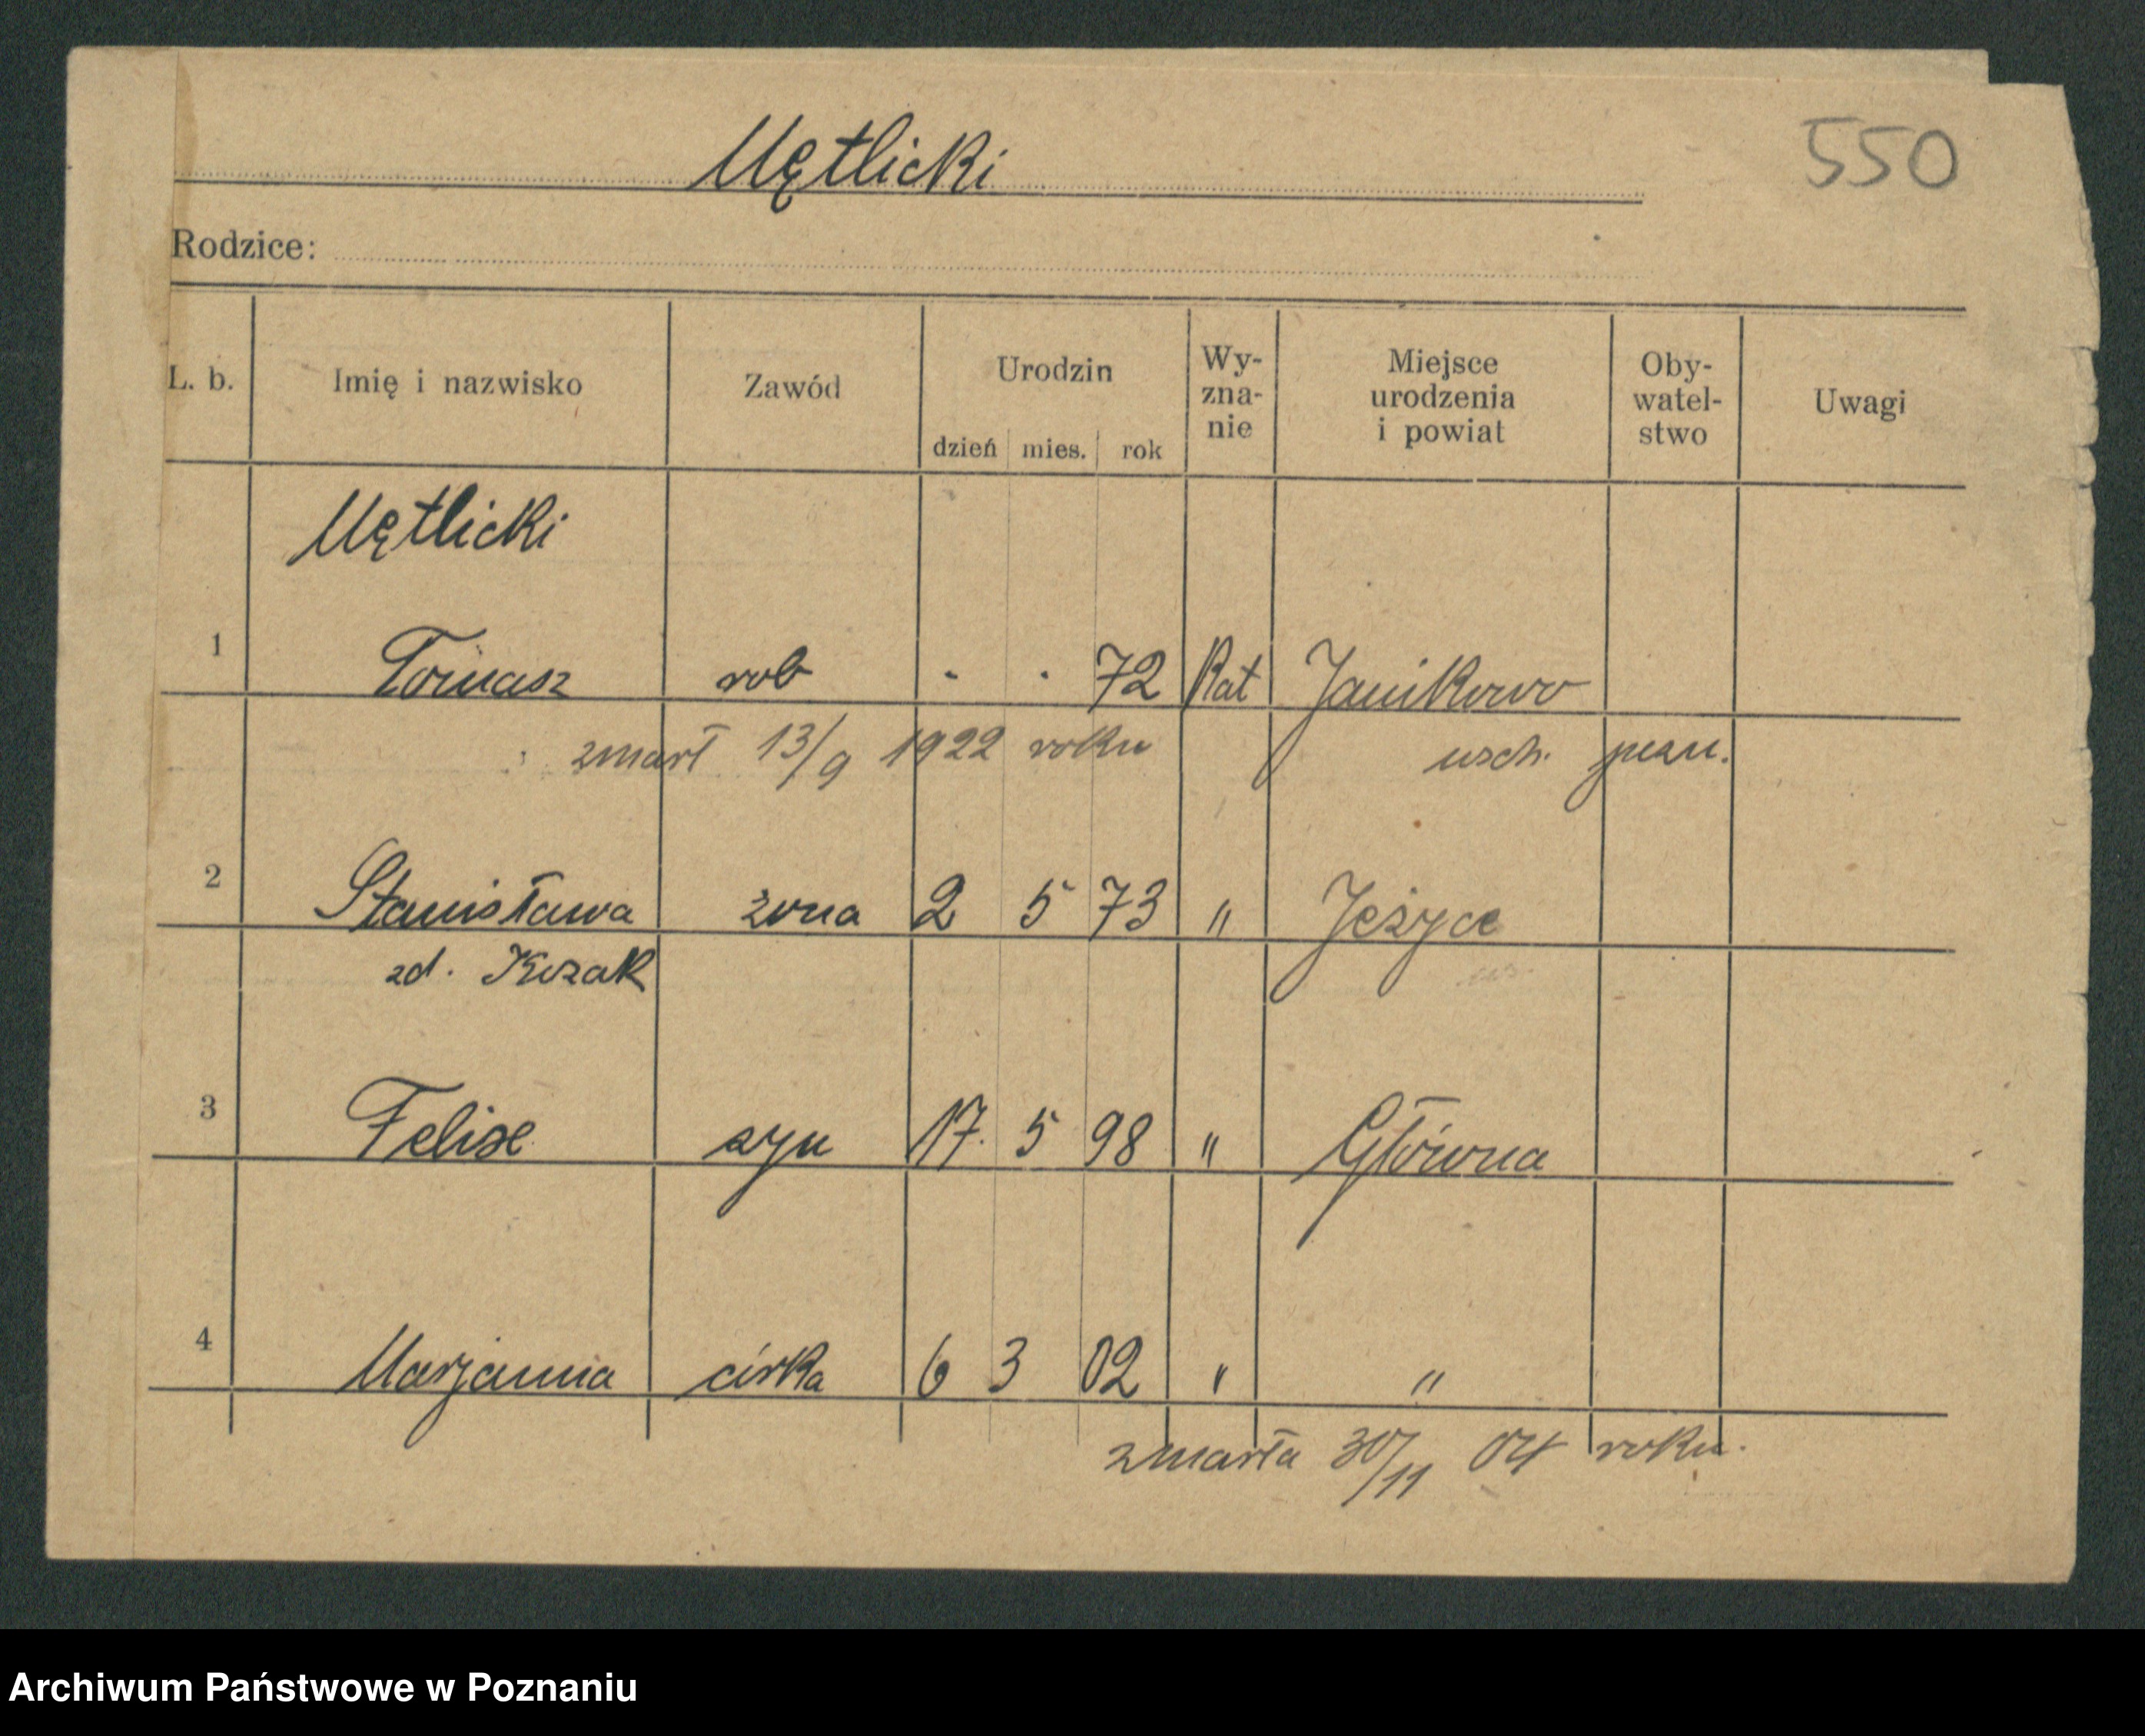 Mętlicki
550
Rodzice:
L. b. Imię i nazwisko Zawód Urodzin dzień mies. rok Wy-zna-nie Miejsce urodzenia i powiat Oby-watel-stwo Uwagi
Mętlicki
1 Tomasz rob - - 72 Kat Janikowo
zmarł 13/9 1922 roku wsch. pozn.
2 Stanisława żona 2 5 73 " Jeżyce
zd. Kozak
3 Felix syn 17. 5 98 " Główna
4 Marjanna córka 6 3 02 " "
zmarła 30/11 04 roku.
Archiwum Państwowe w Poznaniu